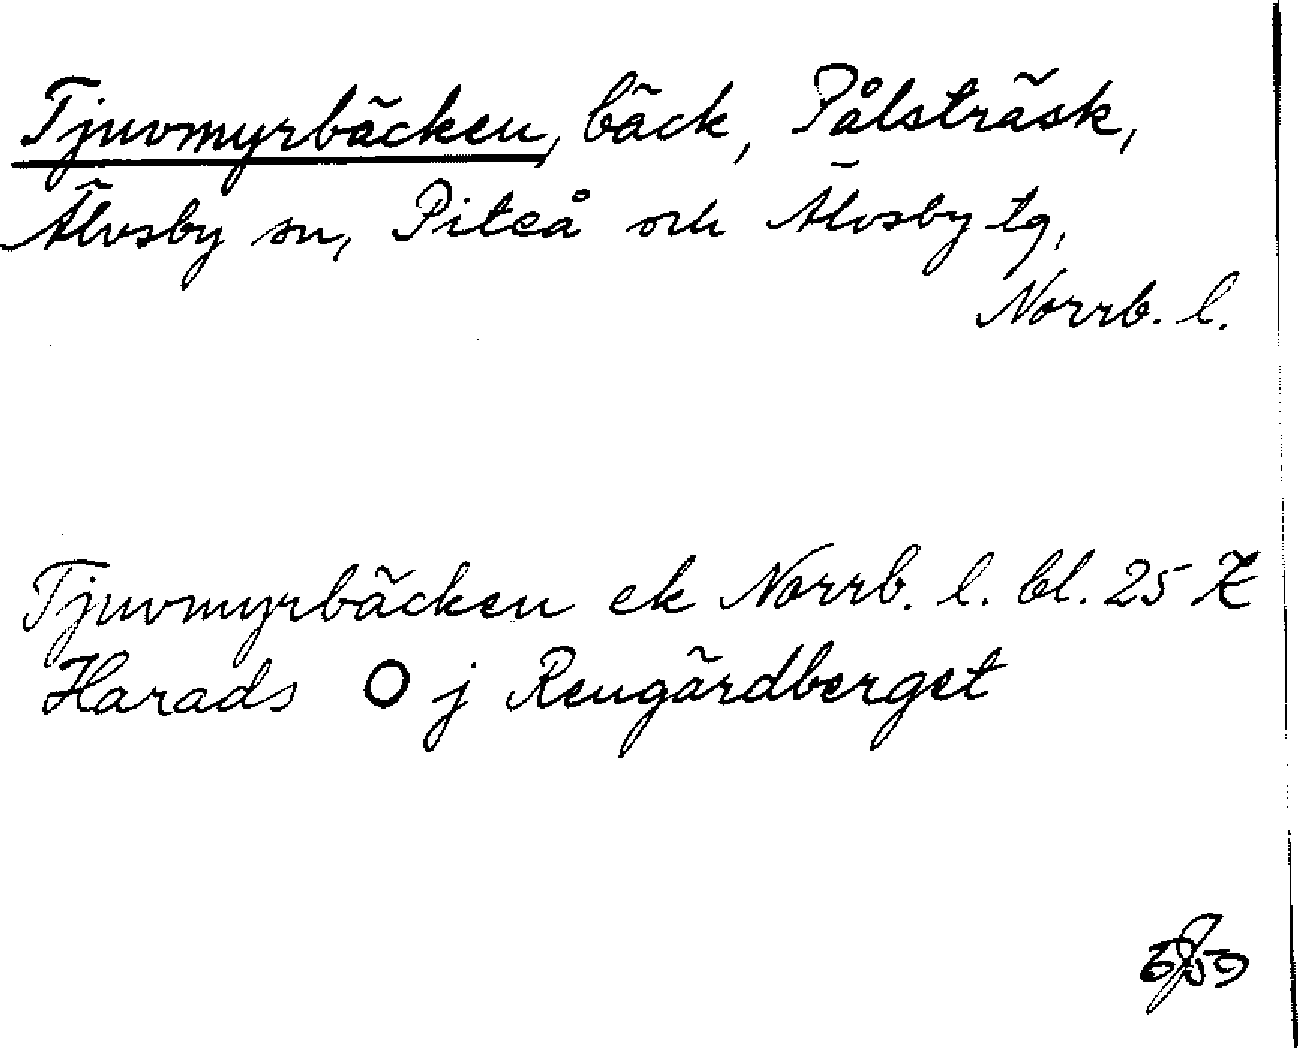 Tjuvmyrbäcken, bäck, Pålsträsk,
Älvsby sn, Piteå och Älvsby tg,
Norrb. l.
Tjuvmyrbäcken ek Norrb. l. bl. 25 K
Harads O j Rengärdberget